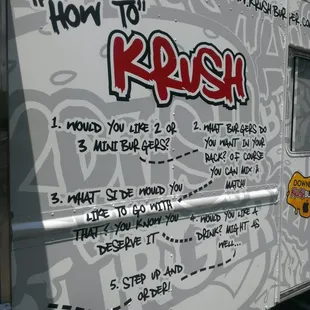 "HOW TO"
KRUSH
W.KRUSHBURGER.CO
1. WOULD YOU LIKE 2 OR
3 MINI BURGERS?
2. WHAT BURGERS DO
YOU WANT IN YOUR
PACK? OF COURSE
YOU CAN MIX &
MATCH!
3. WHAT SIDE WOULD YOU
LIKE TO GO WITH
THAT? YOU KNOW YOU
DESERVE IT
4. WOULD YOU LIKE A
DRINK? MIGHT AS
WELL...
5. STEP UP AND
ORDER!
DOWN